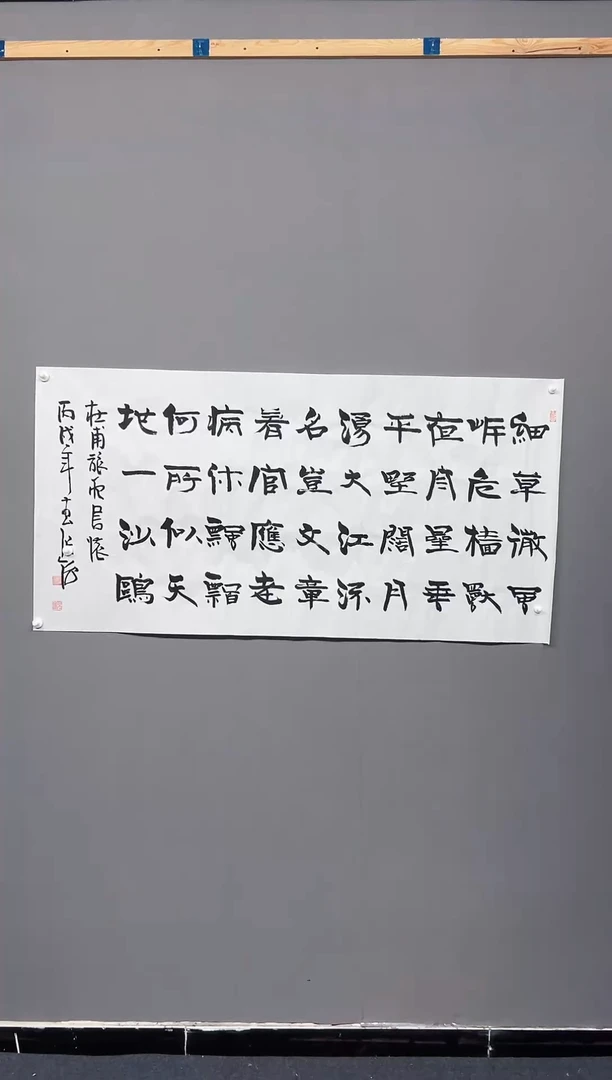 細草微風
岸危檣獨
夜舟星垂
平野闊月
湧大江流
名豈文章
著官應老
病休飄飄
何所似天
地一沙鷗
杜甫旅夜書懷
丙戌年